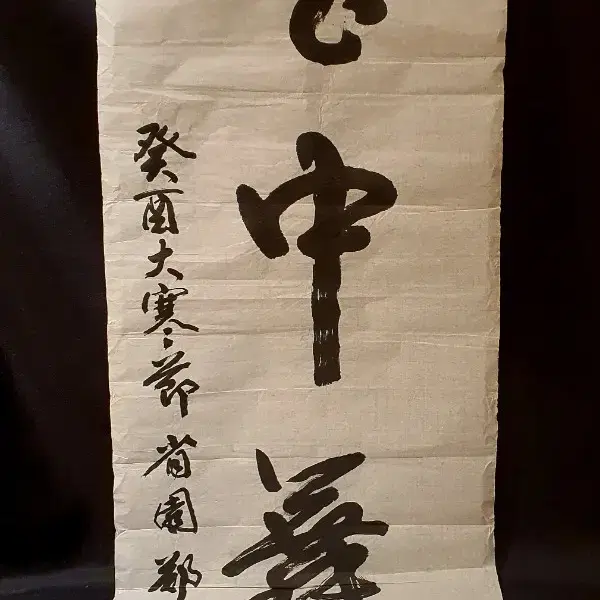 中
癸酉大寒節 省園 鄭